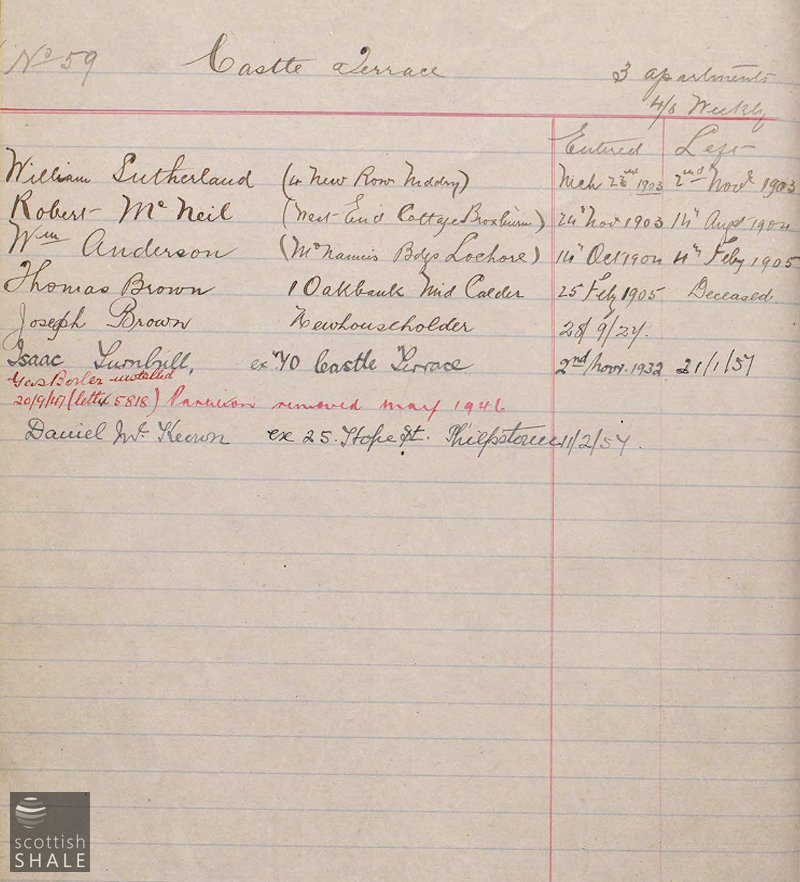 No 59 Castle Terrace 3 apartments
4/6 Weekly
Entered Left
William Sutherland (4 New Row Niddry) Mch 23rd 1903 2nd Novr 1903
Robert McNeil (West End Cottage Broxburn) 24 Nov 1903 14 Augt 1904
Wm Anderson (McNamis Bdgs Lochore) 14 Oct 1904 4th Feby 1905
Thomas Brown 1 Oakbank Mid Calder 25 Feby 1905 Deceased
Joseph Brown Newhouseholder 28/9/27.
Isaac Turnbull, ex 70 Castle Terrace 2nd/Novr. 1932 21/1/57
Gas Boiler installed
20/9/47 (letter 5818) Partition removed may 1946
Daniel Mc Keown ex 25. Hope St. Philpstoun 11/2/57.
scottish
SHALE